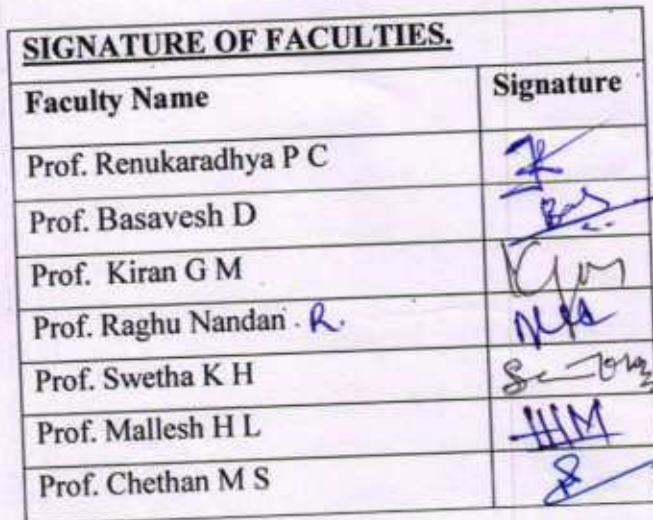 SIGNATURE OF FACULTIES.
Faculty Name Signature
Prof. Renukaradhya P C
Prof. Basavesh D
Prof. Kiran G M
Prof. Raghu Nandan . R.
Prof. Swetha K H
Prof. Mallesh H L
Prof. Chethan M S